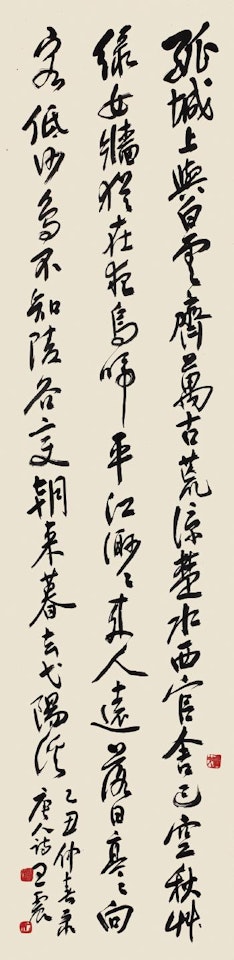 孤城上與白雲齊萬古荒涼楚水西官舍已空秋艸
綠女牆猶在夜烏啼平江渺〻來人遠落日亭〻向
客低沙鳥不知陵谷變朝來暮去弋陽溪
乙丑仲春录
唐人诗王震